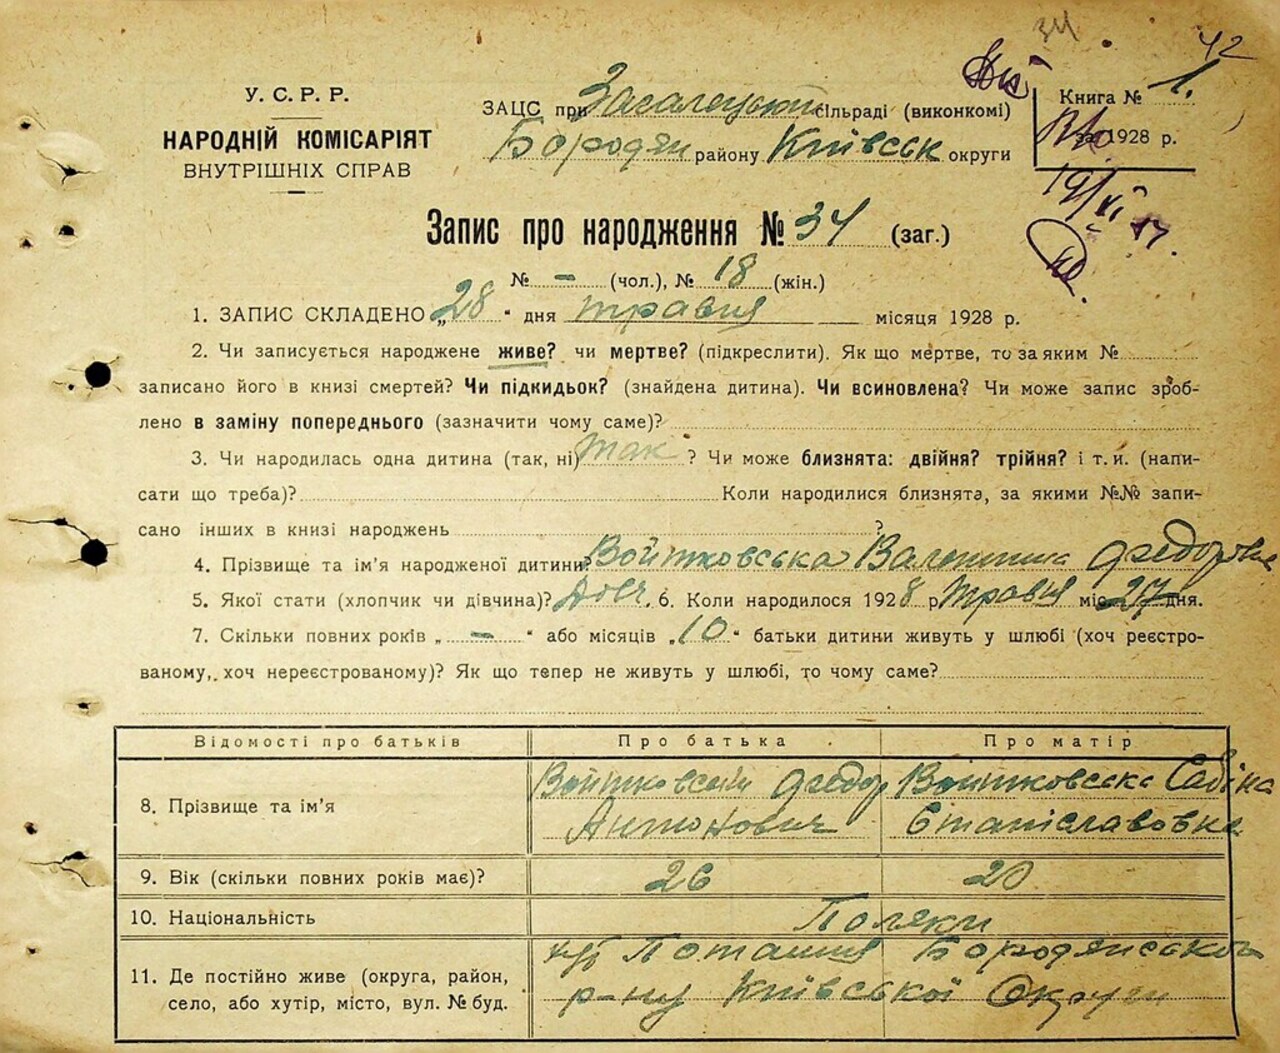 34
42
У. С. Р. Р.
НАРОДНІЙ КОМІСАРІЯТ
ВНУТРІШНІХ СПРАВ
ЗАЦС при Загалецькій сільраді (виконкомі)
Бородян району Київськ округи
Книга № 1.
за 1928 р.
19/VI
Запис про народження № 34 (заг.)
№ – (чол.), № 18 (жін.)
1. ЗАПИС СКЛАДЕНО „28" дня травня місяця 1928 р.
2. Чи записується народжене живе? чи мертве? (підкреслити). Як що мертве, то за яким №
записано його в книзі смертей? Чи підкидьок? (знайдена дитина). Чи всиновлена? Чи може запис зроб-
лено в заміну попереднього (зазначити чому саме)?
3. Чи народилась одна дитина (так, ні) так ? Чи може близнята: двійня? трійня? і т. и. (напи-
сати що треба)? Коли народилися близнята, за якими №№ запи-
сано інших в книзі народжень ?
4. Прізвище та ім'я народженої дитини? Войтковська Валентина Федоровна
5. Якої стати (хлопчик чи дівчина)? Дівч. 6. Коли народилося 1928 р. травня міс. 27 дня.
7. Скільки повних років „ – " або місяців „10" батьки дитини живуть у шлюбі (хоч реєстро-
ваному, хоч нереєстрованому)? Як що тепер не живуть у шлюбі, то чому саме?
Відомості про батьків Про батька Про матір
8. Прізвище та ім'я Войтковський Федор Антонович Войтковська Сабіна Станіславовна
9. Вік (скільки повних років має)? 26 20
10. Національність Поляки
11. Де постійно живе (округа, район, село, або хутір, місто, вул. № буд. Поташня Бородянського
р-ну Київської Округи